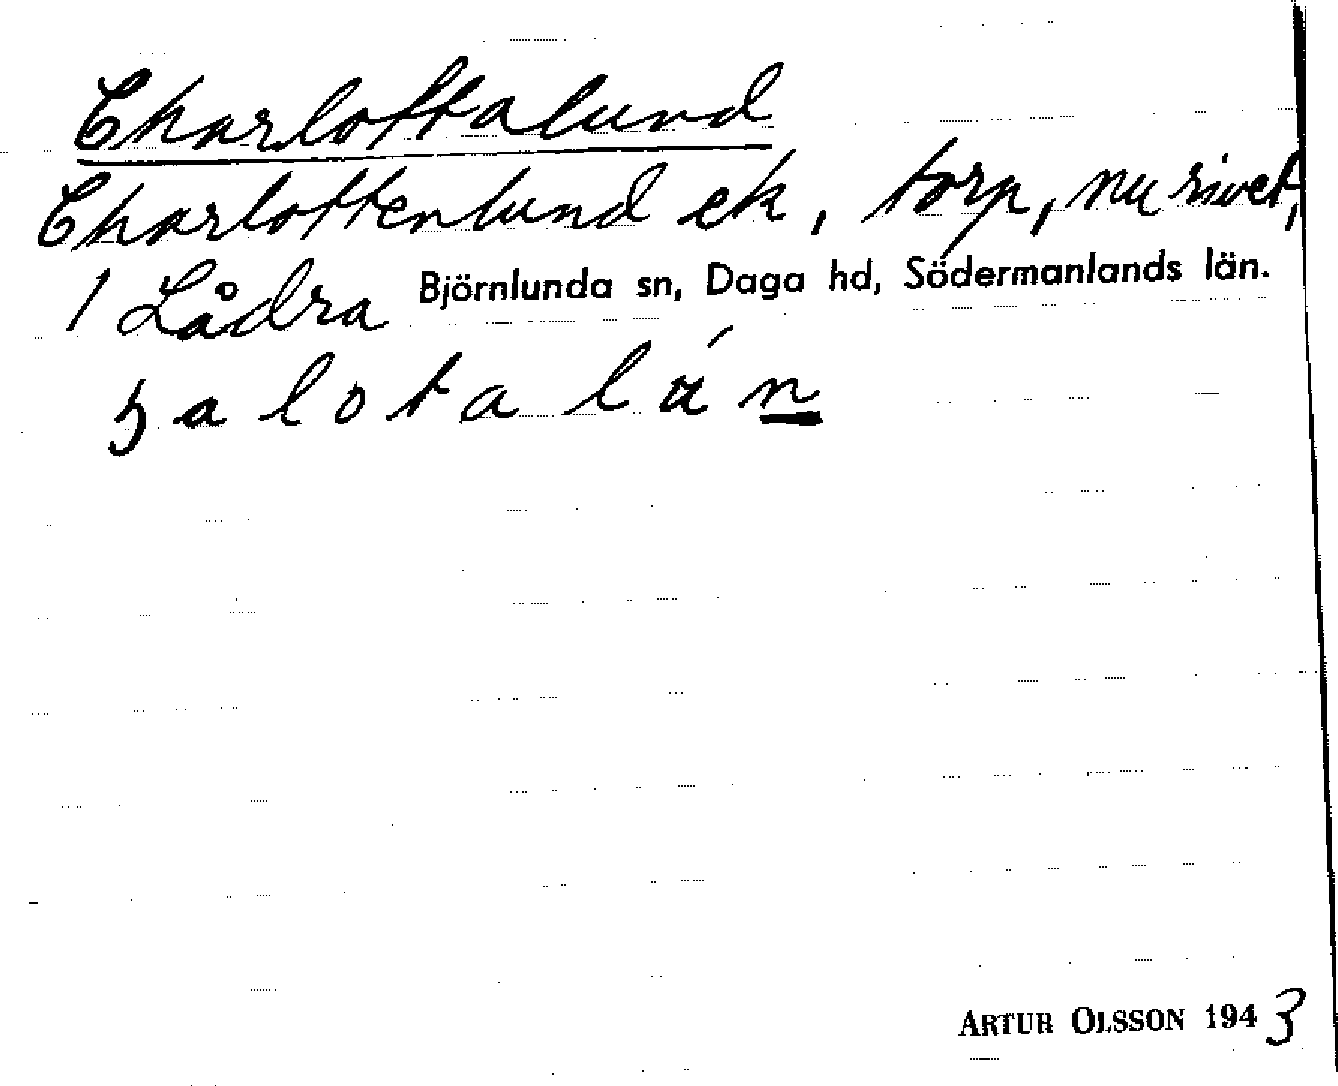 Charlottalund
Charlottenlund ek, torp, nu rivet,
1 Lådra Björnlunda sn, Daga hd, Södermanlands län.
ꞩalota lán
ARTUR OLSSON 1943